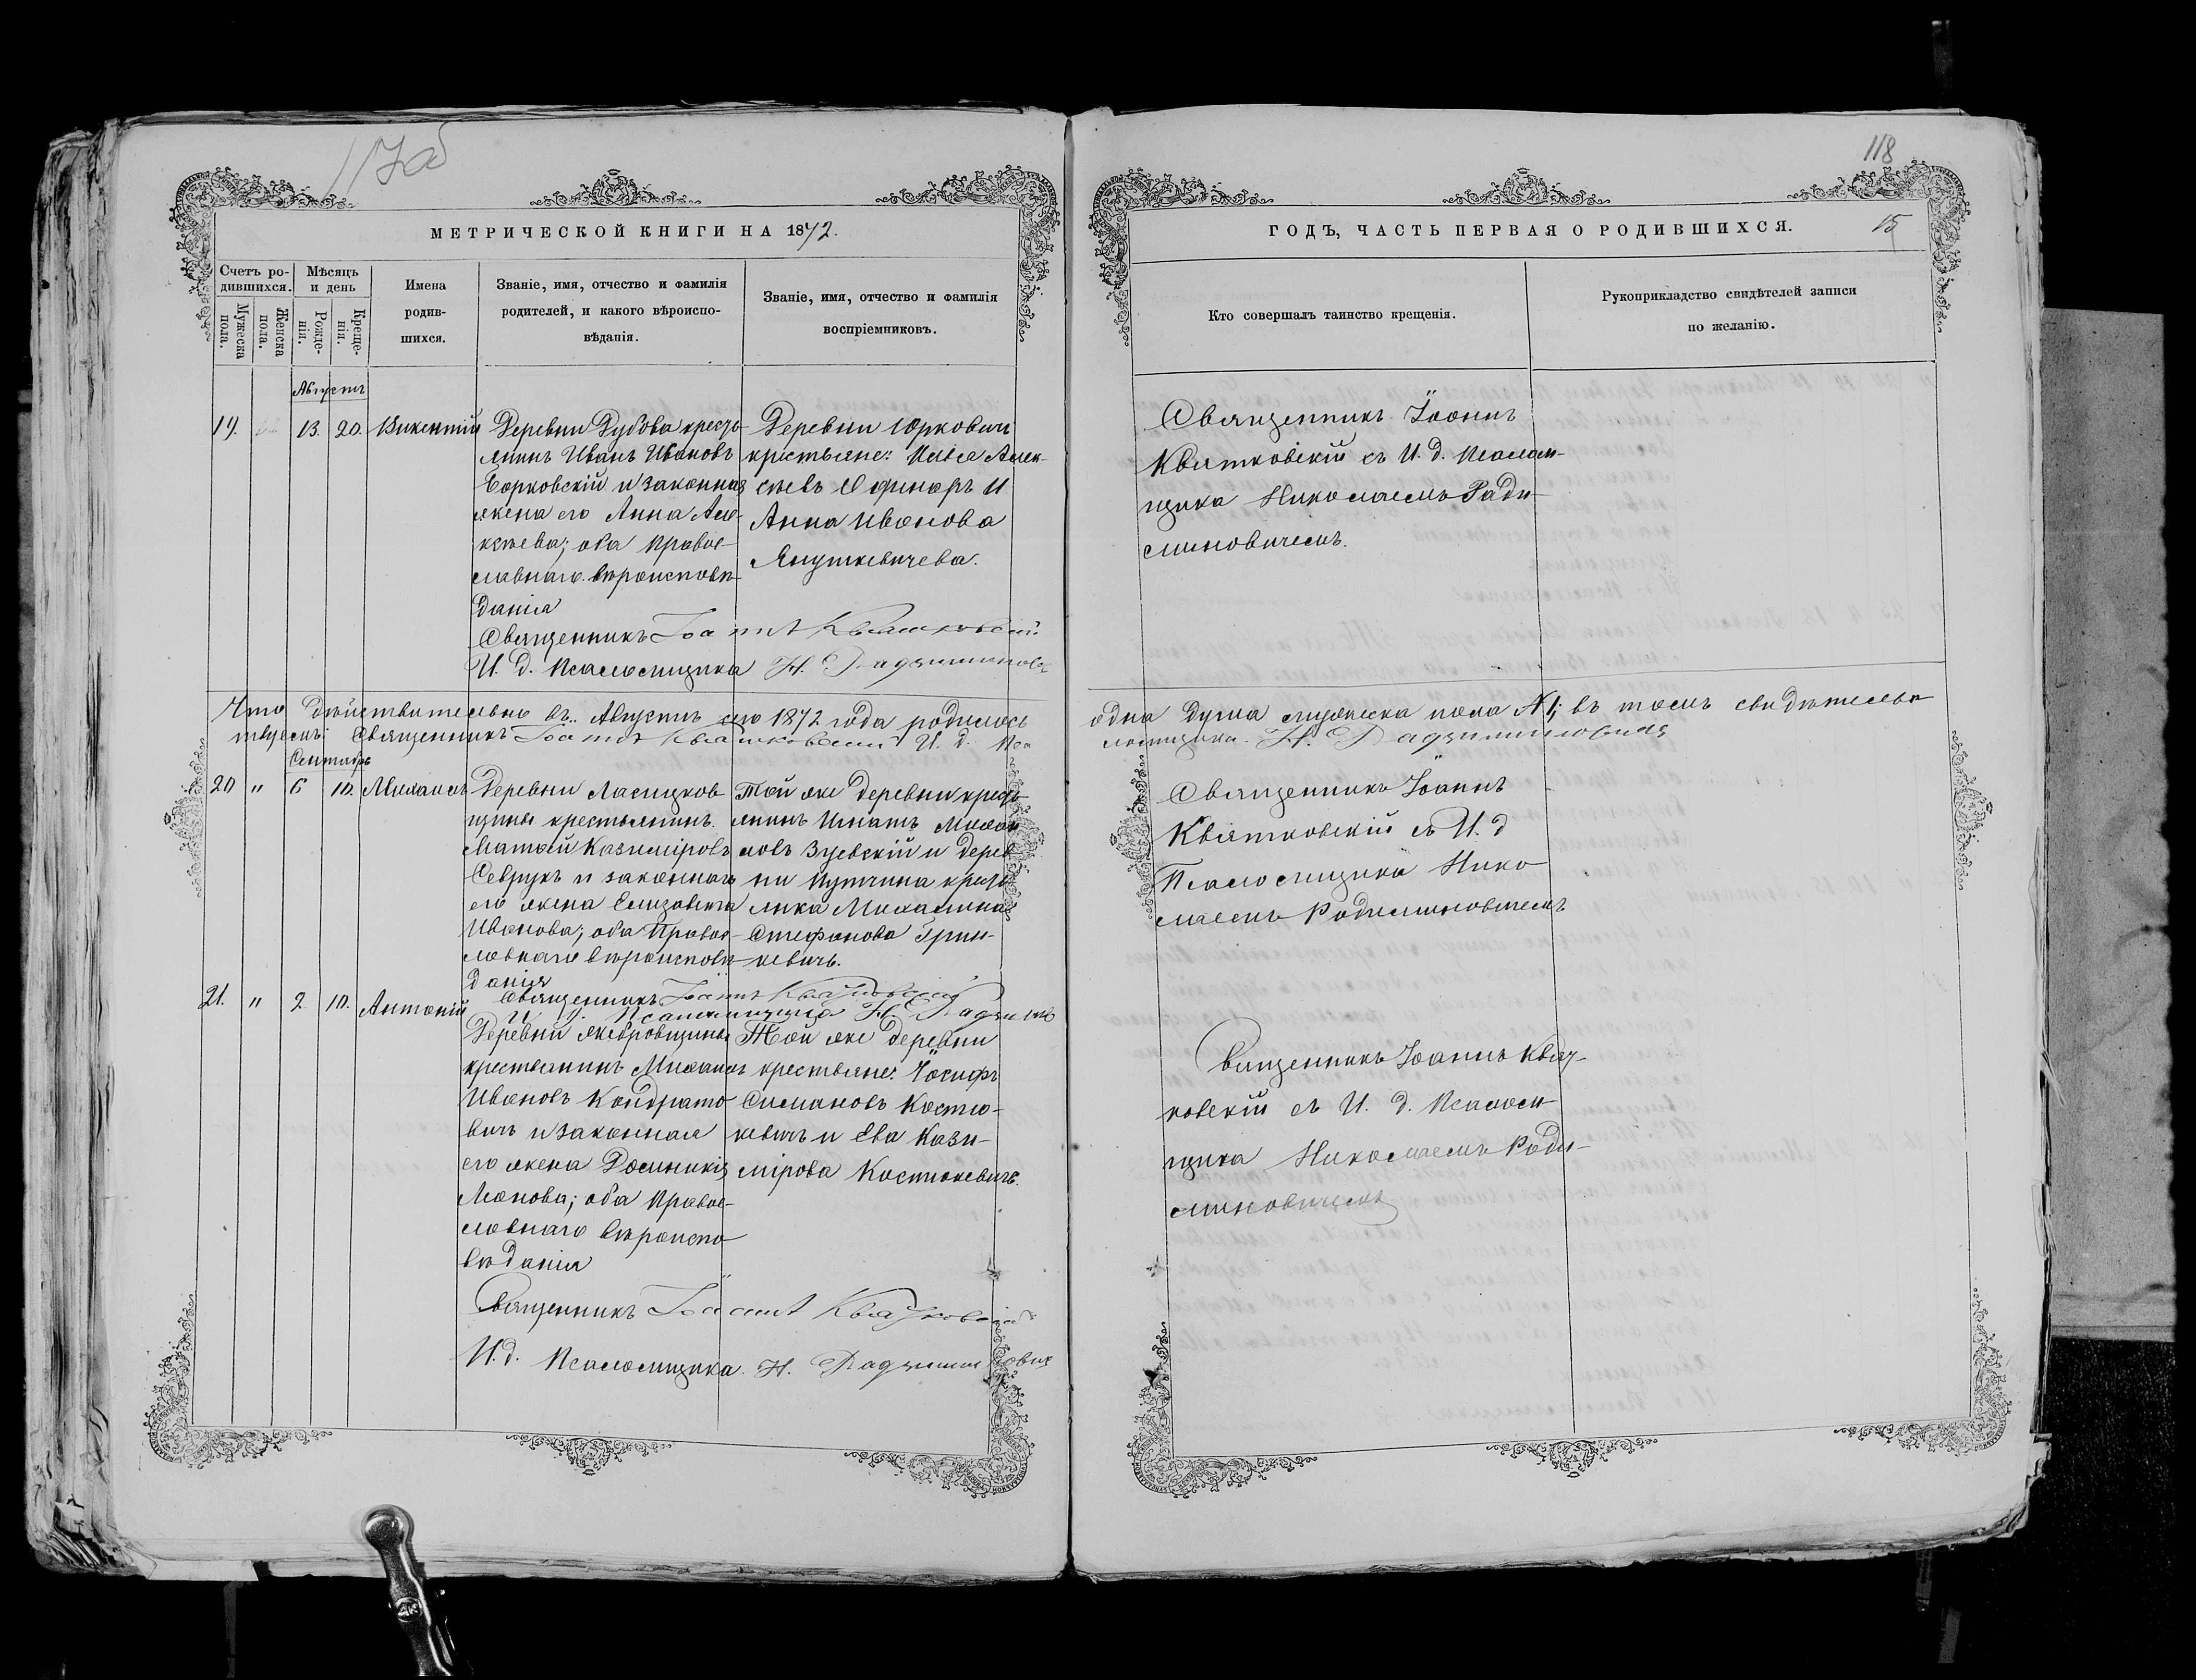 118
МЕТРИЧЕСКОЙ КНИГИ НА 1872.
Счетъ ро-
дившихся.
Мужеска
пола.
Женска
пола.
Мѣсяцъ
и день
Рожде-
нія.
Креще-
нія.
Имена
родив-
шихся.
Званіе, имя, отчество и фамилія
родителей, и какого вѣроиспо-
вѣданія.
Званіе, имя, отчество и фамилія
воспріемниковъ.
Августъ
19. 13. 20. Викентій
Деревни Дубова кресть-
янинъ Иванъ Ивановъ
Борковскій и законная
жена его Анна Але-
ксѣева; оба Правос-
лавнаго вѣроисповѣ-
данія
Деревни Юрковичъ
крестьяне: Алек-
сѣевъ и
Анна Иванова
Янушкевичева.
Священникъ Іоаннъ Квятковскій
И. д. Псаломщика Н. Радзиминов
Что дѣйствительно въ Августѣ сего 1872 года родилось
твуемъ: Священникъ Іоаннъ Квятковскій И. д. Пса
Сентябрь
20 " 6 10. Михаилъ
Деревни
щины крестьянинъ
Матѳей Казиміровъ
Севрукъ и законная
его жена Елизавета
Иванова; оба Правос-
лавнаго вѣроисповѣ-
данія
Той же деревни кресть-
янинъ Игнатъ Михаи
ловъ Зуевскій и дерев
ни Путчина кресть
янка Михалина
Стефанова Грин-
кевичъ.
Священникъ Іоаннъ Квятковскій
И. д. Псаломщика Н. Радзимино
21. " 2 10. Антоній
Деревни Жебровщины
крестьянинъ Михаилъ
Ивановъ Кондрато
вичъ и законная
его жена Доминикія
Леонова; оба Правос-
лавнаго вѣроиспо
вѣданія
Той же деревни
крестьяне: Іосифъ
Симановъ Костю-
кевичъ и Ева Кази-
мірова Костюкевичъ.
Священникъ Іоаннъ Квятковскій
И. д. Псаломщика. Н. Радзиминович
ГОДЪ, ЧАСТЬ ПЕРВАЯ О РОДИВШИХСЯ.
15
Кто совершалъ таинство крещенія.
Рукоприкладство свидѣтелей записи
по желанію.
Священникъ Іоаннъ
Квятковскій съ И. д. Псалом-
щика НиколаемъРади-
миновичемъ.
одна душа мужеска пола №1; въ томъ свидѣтельс
ломщика. Н. Радзиминовичъ
Священникъ Іоаннъ
Квятковскій съ И. д
Псаломщика Нико
лаемъ Радиминовичемъ
Священникъ Іоаннъ Квят-
ковскій съ И. д. Псалом-
щика Николаемъ Ради-
миновичемъ